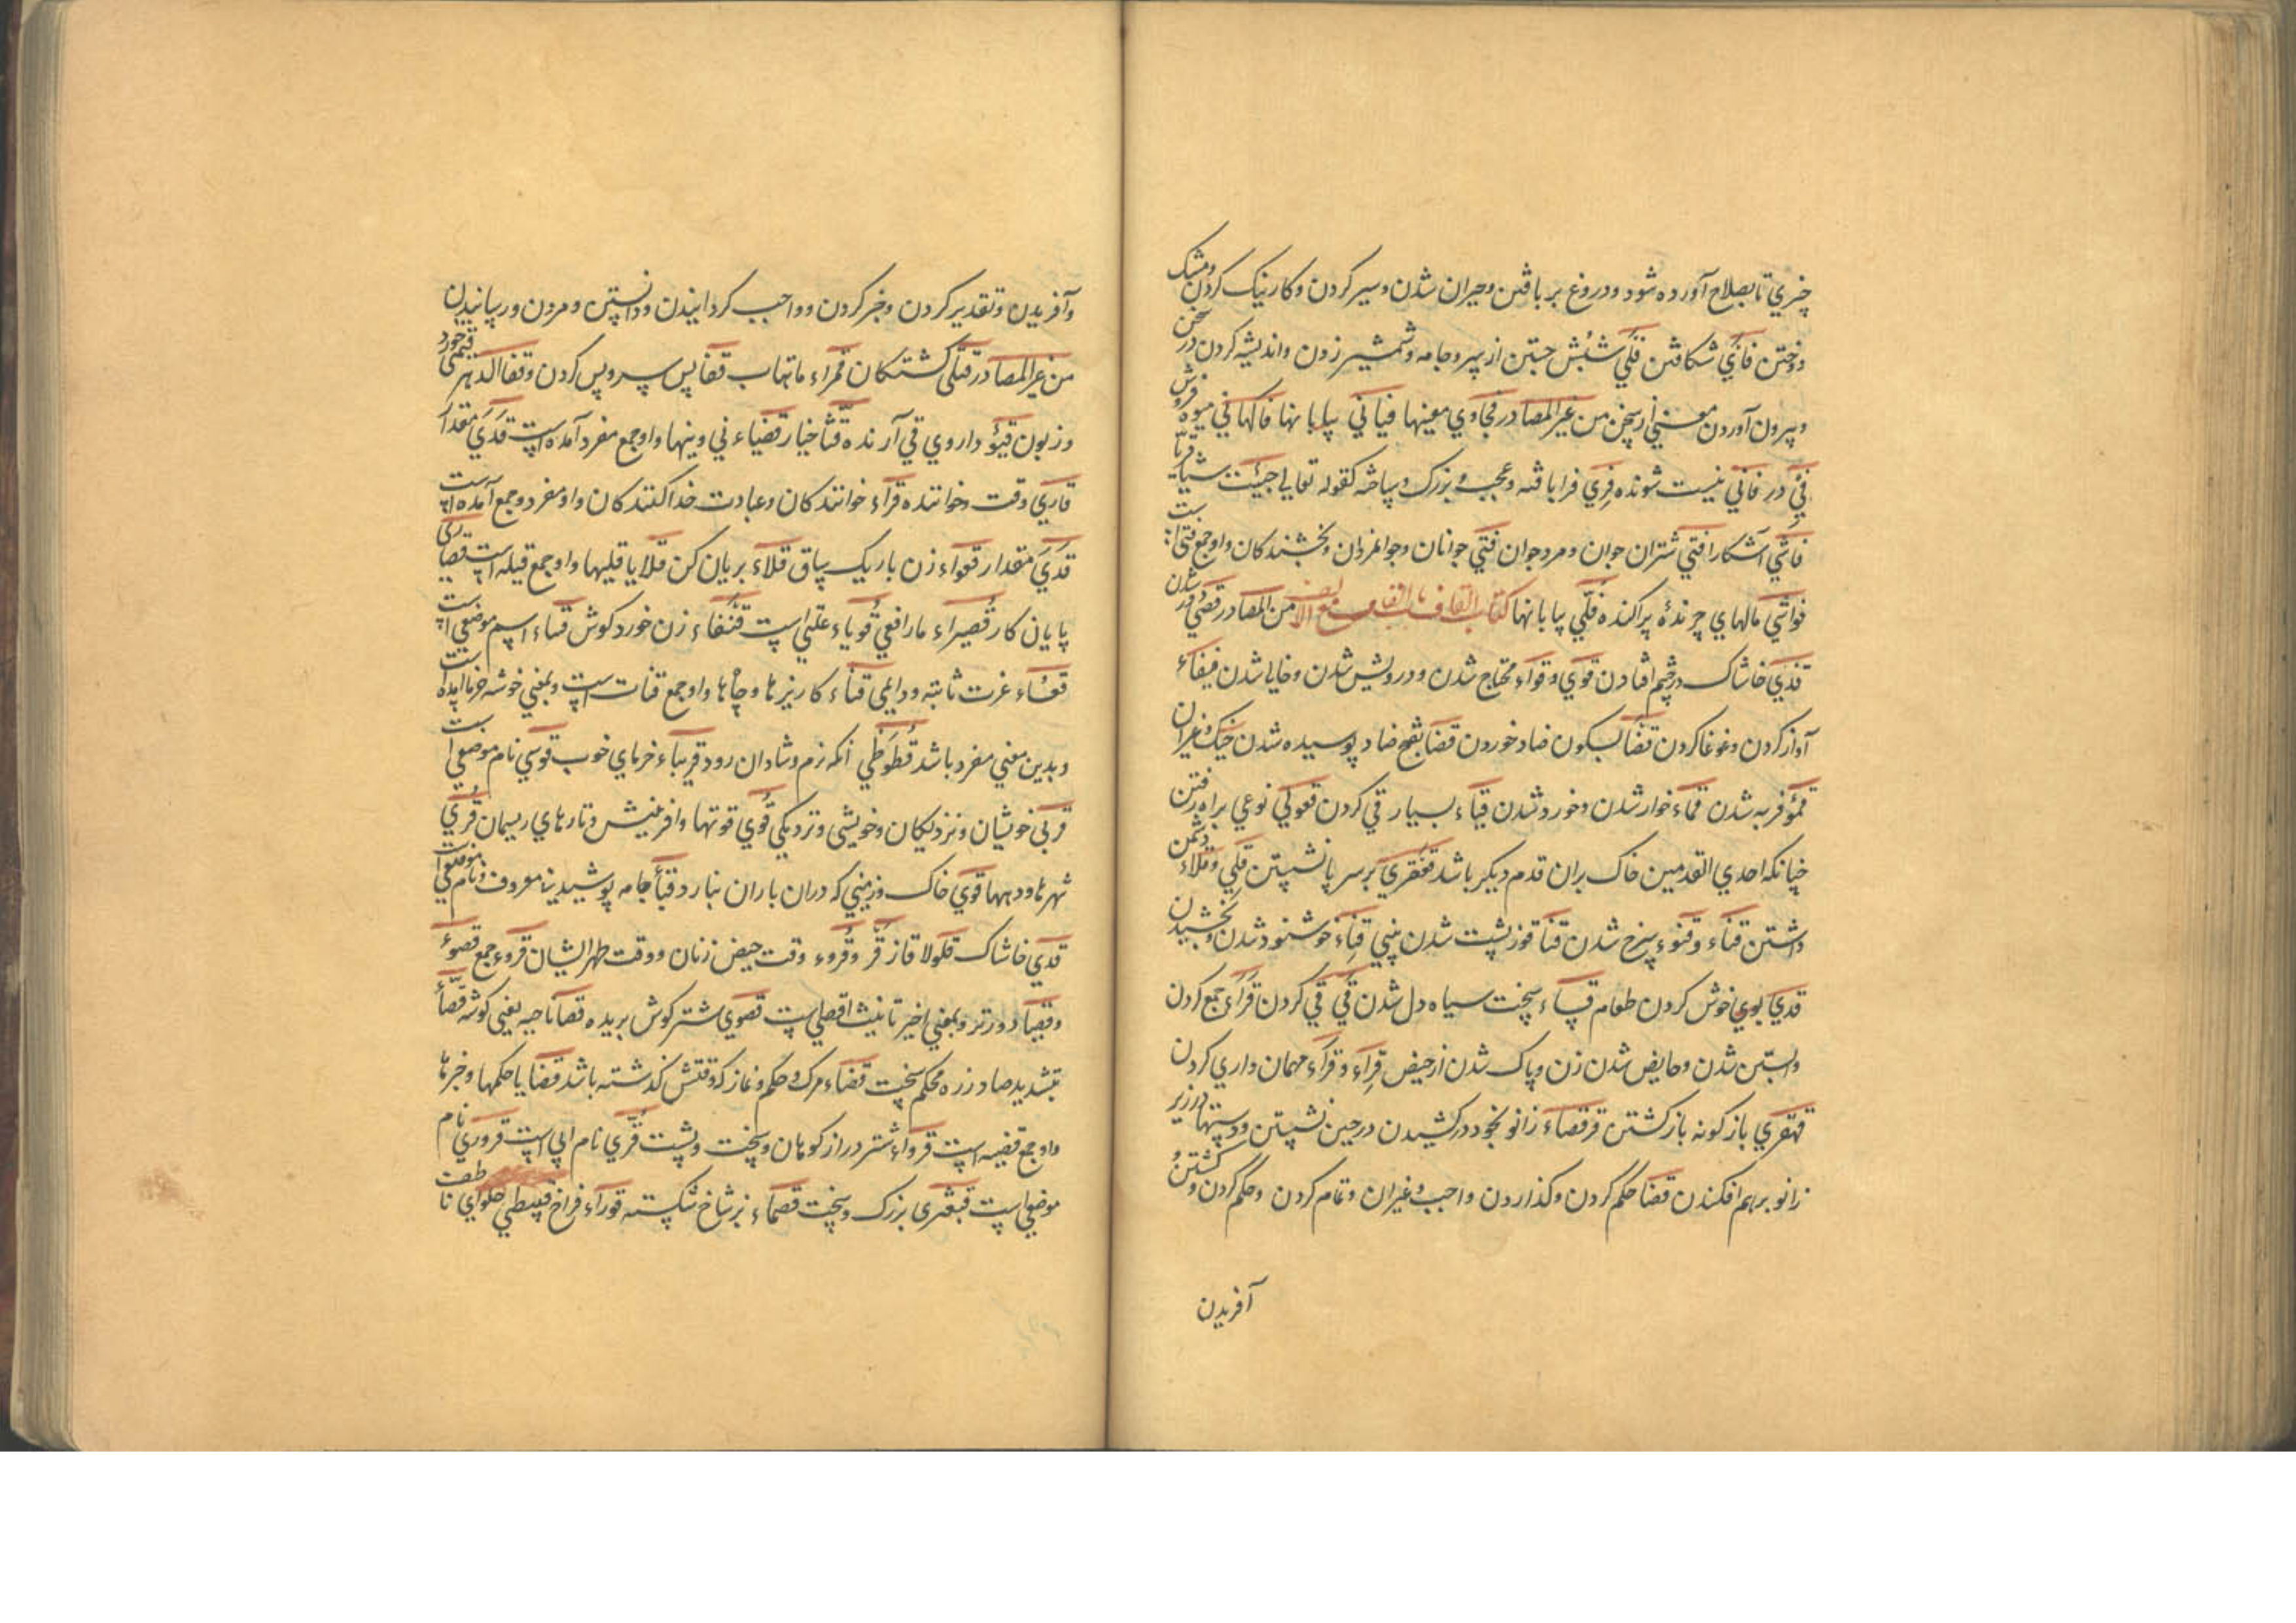 چیزي تا بصلاح آورده شود و دروغ بر بافتن و حیران شدن و سیر کردن و کار نیک کردن و مشک
دوختن فأي شکافتن فلي شبش جستن از سر و جامه و شمشیر زدن و اندیشه کردن در سخن
و بیرون آوردن معني از سخن من غیر المصادر فحاوي معنیها فیافي بیابانها فاکهاني میوه فروش
في در فاني نیست شونده فري فرا بافته و عجب و بزرک و ساخته کقوله تعالي جیئت شیئا فریا
فاشي آشکارا فتي شتران جوان و مرد جوان فتي جوانان و جوانمردان و بخشندکان و او جمع فتي است
فواشي مالهاي چرنده پراکنده فلي بیابانها کتاب القاف باب القاف مع الالف من المصادر قصي دور شدن
قذي خاشاک در چشم افتادن قوي و قواء محتاج شدن و درویش شدن و خالي شدن قیقاء
آواز کردن و غوغا کردن قضأ بسکون ضاد خوردن قضأ بفتح ضاد پوسیده شدن خیک و غیر آن
قمؤ فربه شدن قماء خوار شدن و خورد شدن قیاء بسیار قي کردن قعولي نوعي براه رفتن
چنانکه احدي القدمین خاک بران قدم دیکر باشد قعفري بر سر پا نشستن قلي و قلاء دشمن
داشتن قناء و قنوء سرخ شدن قنا قوز پشت شدن بیني قناء خوشنود شدن و بخشیدن
قدي بوي خوش کردن طعام قساء سخت سیاه دل شدن قي قي کردن قرآء جمع کردن
و ابستن شدن و حایض شدن زن و پاک شدن از حیض قراء و قرآء مهمان داري کردن
قهقري باز کونه باز کشتن قرفصاء زانو بخود در کشیدن در حین نشستن و دستها در زیر
زانو بر هم افکندن قضا حکم کردن و کذاردن واجب و غیر ان و تمام کردن و حکم کردن و کشتن و
آفریدن
و آفریدن و تقدیر کردن و خبر کردن و واجب کردانیدن و دانستن و مردن و رسانیدن
من غیر المصادر قتلي کشتکان قمراء ماهتاب قفا پس سر و پس کردن و قفا الدهر قیمتي خورد
و زبون قیؤ داروي قي آرنده قثا خیار قضیاء ني و نیها و او جمع مفرد آمده است قدي مقدار
قاري وقت و خواننده قرآء خوانندکان و عبادت خدا کنندکان و او مفرد و جمع آمده است
قدي مقدار قعواء زن باریک ساق قلاء بریان کن قلایا قلیها و او جمع قلیه است قصاري
پایان کار قصیراء مار افعي قوباء علتي است قنفاء زن خورد کوش قساء اسم موضعي است
قعساء عزت ثابته و دایمي قناء کاریزها و چاهها و او جمع قنات است و بمعني خوشه خرما آمده است
و بدین معني مفرد باشد قطوطي آنکه نرم و شادان رود قریباء خرماي خوب قوسي نام موضعي است
قربي خویشان و نزدیکان و خویشي و نزدیکي قوي قوتها و افرینش و تارهاي ریسمان قري
شهرها و دیهها قوي خاک و زمیني که دران باران نبارد قباء جامه پوشیدني معروف و نام موضعي است
قدي خاشاک قلولا قاز قر و قروء وقت حیض زنان و وقت طهر ایشان قروء جمع قصوء
و قصیا دورتر و بمعني اخیر تانیث اقصي است قصوي شتر کوش بریده قصا ناحیه یعني کوشه قضاء
بتشدید ضاد زره محکم سخت قضاء مرک و حکم و نماز که وقتش کذشته باشد قضایا حکمها و خبرها
و او جمع قضیه است قرواء شتر دراز کوهان و سخت و پشت قري نام ابي است قروري نام
موضعي است قبعثري بزرک و سخت قصماء بز شاخ شکسته قوراء فراخ قبیطي حلواي ناطف